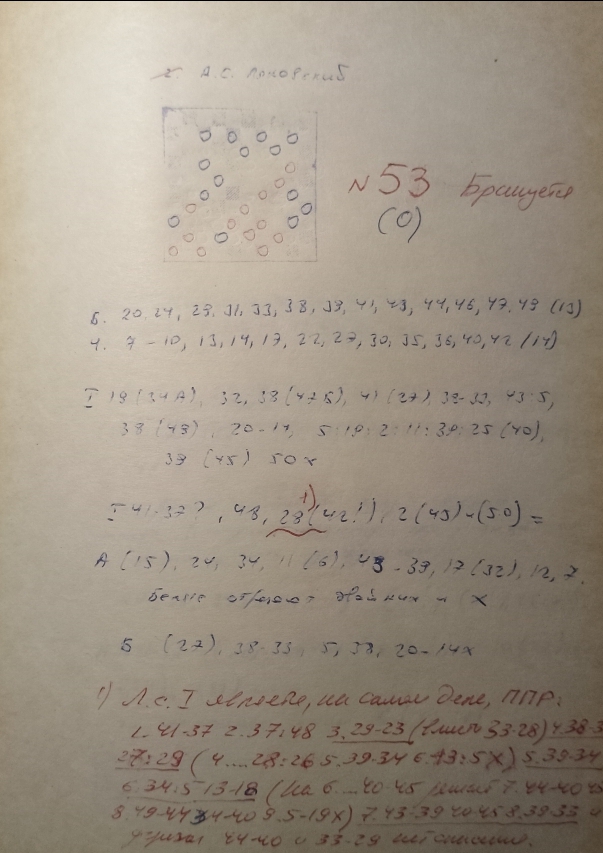 А.С. Ляховский
№ 53 Бракуется
(0)
Б. 20, 24, 29, 31, 33, 38, 39, 41, 43, 44, 46, 47, 49 (13)
Ч. 7-10, 13, 14, 17, 22, 27, 30, 35, 36, 40, 42 (14)
I 19 (34А), 32, 38 (47Б), 41 (27), 38-33, 43:5,
38 (49), 20-14, 5:19:2:11:39:25 (40),
39 (45) 50х
I 41-37?, 48, 28 (42!), 2 (45) х (50) =
А (15), 24, 34, 11 (6), 43-39, 17 (32), 12, 7.
Белые отрезают двойник и х
Б (27), 38-33, 5, 38, 20-14х
1) Л.с. I является, на самом деле, ППР:
1. 41-37 2. 37:48 3. 29-23 (вместо 33-28) 4. 38-3
27:29 (4....28:26 5. 39-34 6. 43:5х) 5. 39-34
6. 34:5 13-18 (на 6....40-45 решает 7. 44-40 45
8. 49-44 34-40 9. 5-19х) 7. 43-39 40-45 8. 39-33 и
угрозы 44-40 и 33-29